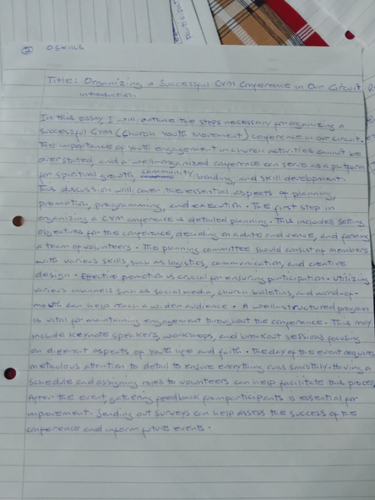 ② O SKILLS
Title: Organizing a Successful CYM Conference in Our Circuit
introduction
In this essay, I will outline the steps necessary for organizing a
successful CYM (Church Youth Movement) conference in our circuit.
The importance of youth engagement in church activities cannot be
overstated, and a well-organized conference can serve as a platform
for spiritual growth, community bonding, and skill development.
This discussion will cover the essential aspects of planning,
promotion, programming, and execution. The first step in
organizing a CYM conference is detailed planning. This includes setting
objectives for the conference, deciding on a date and venue, and forming
a team of volunteers. The planning committee should consist of members
with various skills, such as logistics, communication, and creative
design. Effective promotion is crucial for ensuring participation. Utilizing
various channels such as social media, church bulletins, and word-of-
mouth can help reach a wider audience. A well-structured program
is vital for maintaining engagement throughout the conference. This may
include keynote speakers, workshops, and breakout sessions focusing
on different aspects of youth life and faith. The day of the event requires
meticulous attention to detail to ensure everything runs smoothly. Having a
schedule and assigning roles to volunteers can help facilitate this process.
After the event, gathering feedback from participants is essential for
improvement. Sending out surveys can help assess the success of the
conference and inform future events.